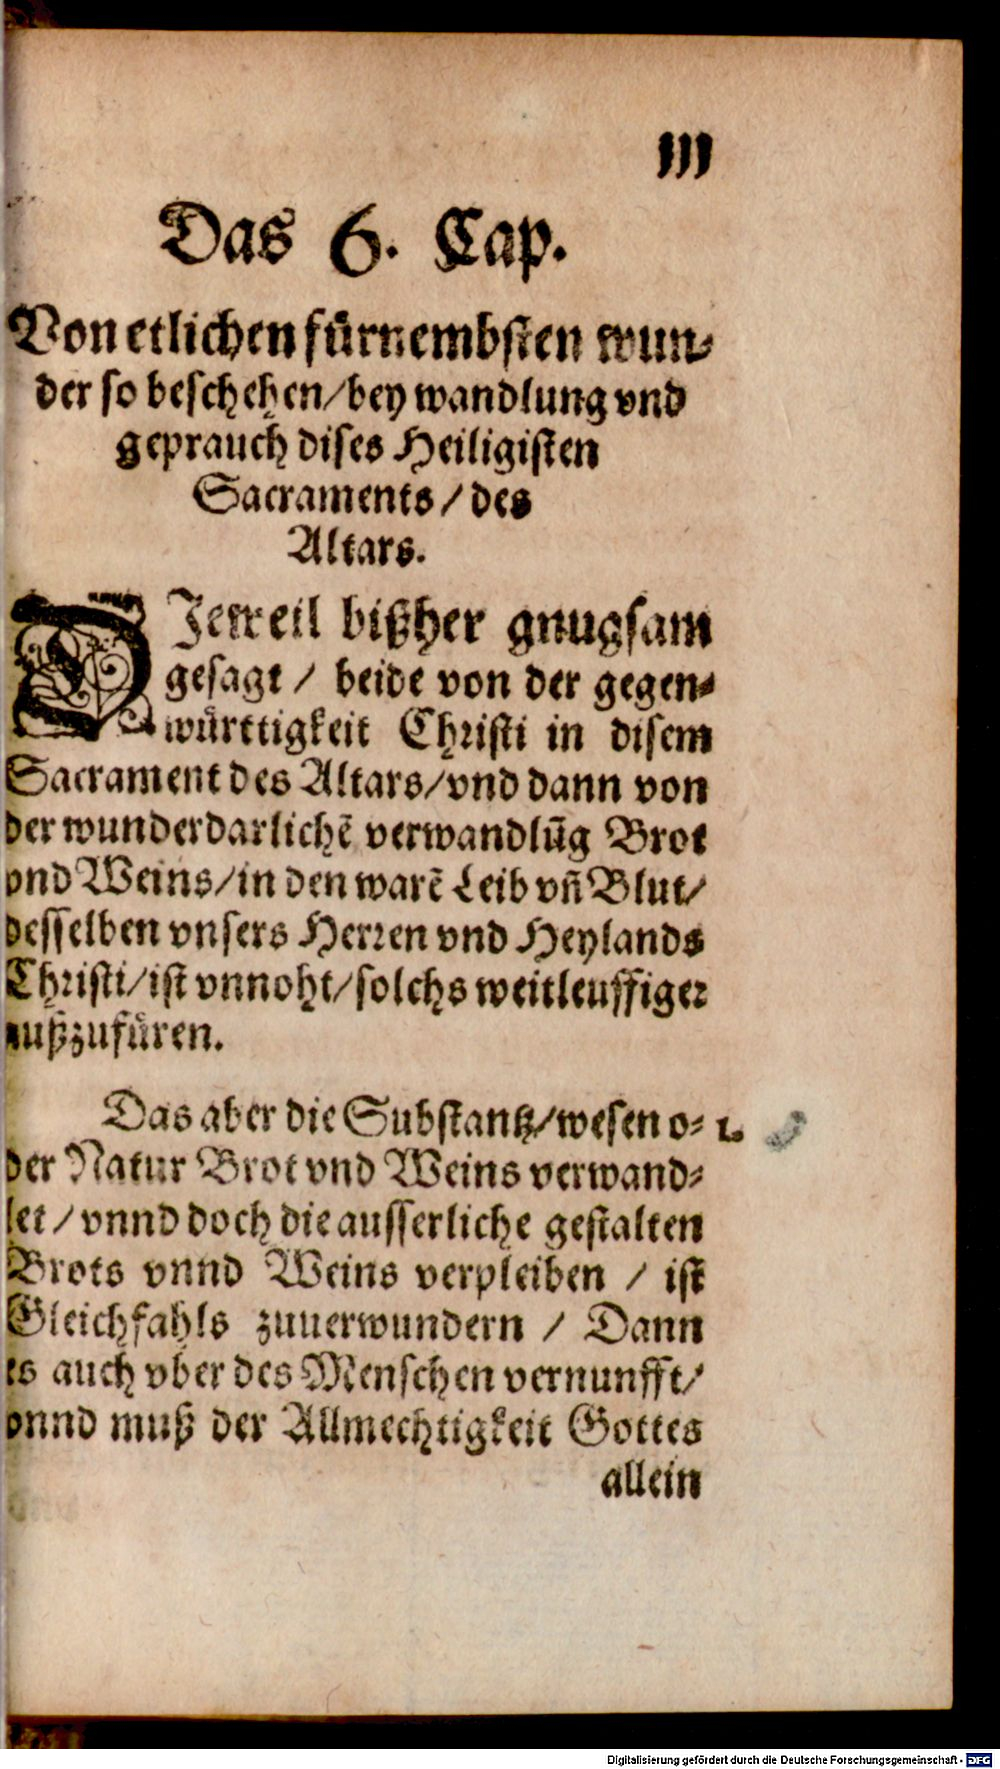 111
Das 6. Cap.
Von etlichen fürnembsten wun-
der so beschehen/bey wandlung vnd
geprauch dises Heiligisten
Sacraments / des
Altars.
DJeweil bißher gnugsam
gesagt / beide von der gegen-
württigkeit Christi in disem
Sacrament des Altars/vnd dann von
der wunderdarlichẽ verwandlũg Brot
vnd Weins/in den warẽ Leib vñ Blut/
desselben vnsers Herren vnd Heylands
Christi/ist vnnoht/solchs weitleuffiger
außzufüren.
Das aber die Substantz/wesen o- 1.
der Natur Brot vnd Weins verwand-
let / vnnd doch die ausserliche gestalten
Brots vnnd Weins verpleiben / ist
Gleichfahls zuuerwundern / Dann
es auch vber des Menschen vernunfft/
vnnd muß der Allmechtigkeit Gottes
allein
Digitalisierung gefördert durch die Deutsche Forschungsgemeinschaft - DFG